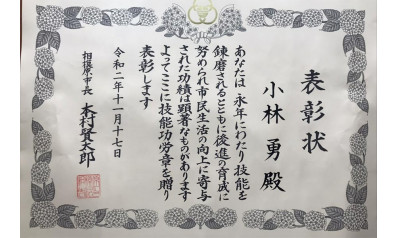 表彰状
小林勇殿
あなたは永年にわたり技能を
錬磨されるとともに後進の育成に
努められ市民生活の向上に寄与
された功績は顕著なものがあります
よってここに技能功労章を贈り
表彰します
令和二年十一月十七日
相模原市長 本村賢太郎